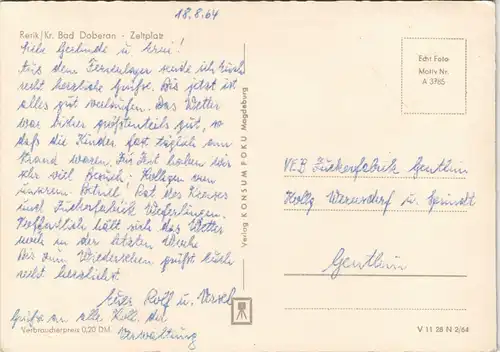 18.8.64
Rerik/Kr. Bad Doberan - Zeltplatz
Liebe Gerlinde u. Erni!
Aus dem Ferienlager sende ich Euch
recht herzliche Grüße. Bis jetzt ist
alles gut verlaufen. Das Wetter
war bisher größtenteils gut, so
daß die Kinder fast täglich am
Strand waren. Zur Zeit haben wir
sehr viel Besuch. Kollegen von
unserem Betrieb! Rat des Kreises
und Zuckerfabrik Weferlingen.
Hoffentlich hält sich das Wetter
noch in der letzten Woche
Bis zum Wiedersehen grüßt Euch
recht herzlichst
Euer Rolf u. Ursel
Grüße an alle Koll. der
Verwaltung
Verbraucherpreis 0,20 DM
Verlag KONSUM FOKU Magdeburg
Echt Foto
Motiv Nr.
A 3785
VEB Zuckerfabrik Genthin
Kollg. Wernsdorf u. Spindt
Genthin
V 11 28 N 2/64